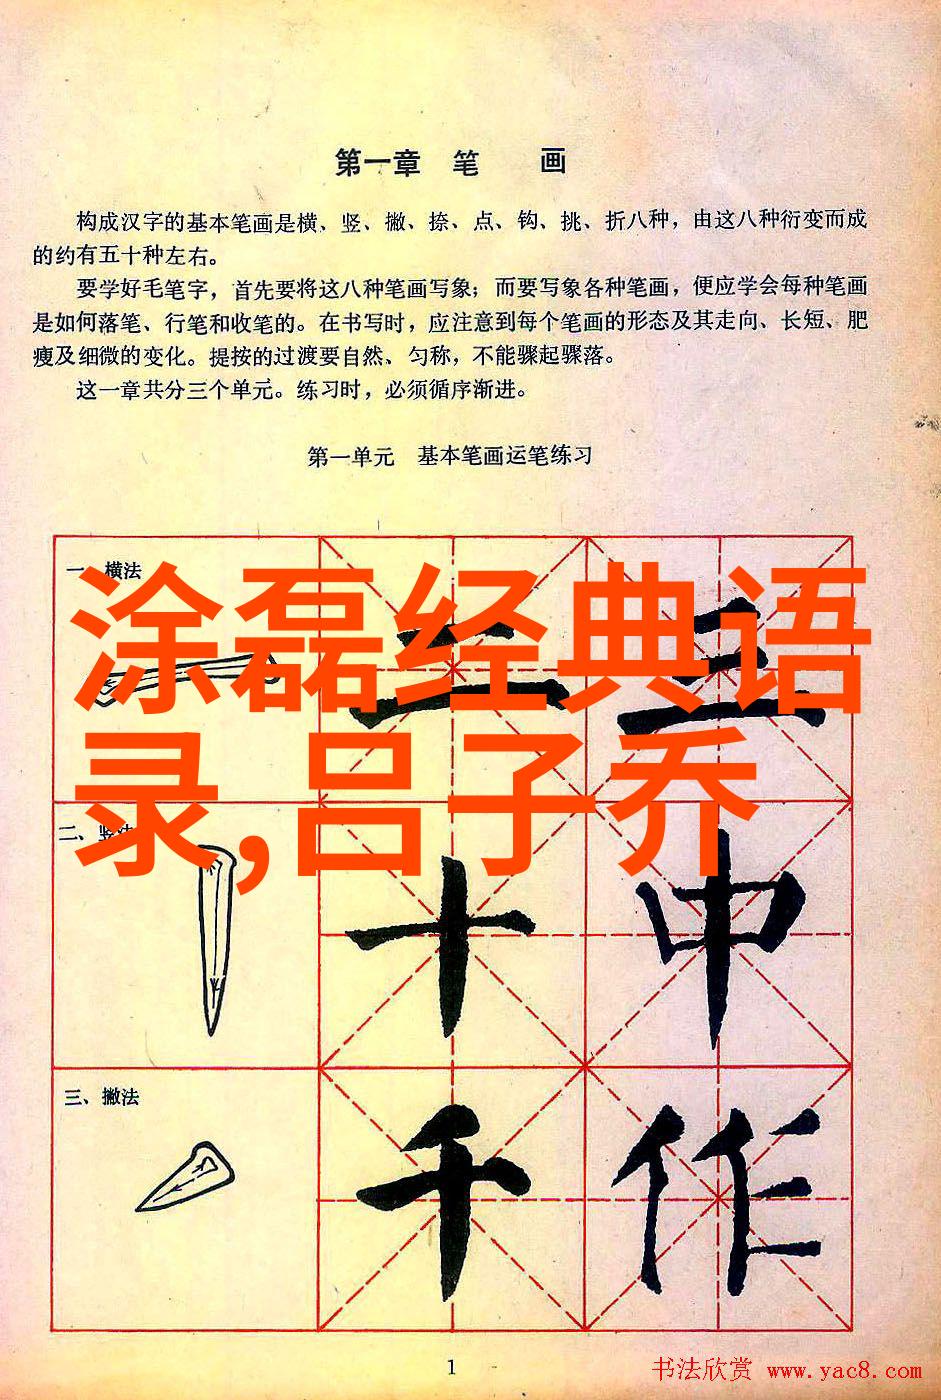 第一章 笔 画
构成汉字的基本笔画是横、竖、撇、捺、点、钩、挑、折八种，由这八种衍变而成
的约有五十种左右。
要学好毛笔字，首先要将这八种笔画写象；而要写象各种笔画，便应学会每种笔画
是如何落笔、行笔和收笔的。在书写时，应注意到每个笔画的形态及其走向、长短、肥
瘦及细微的变化。提按的过渡要自然、匀称，不能骤起骤落。
这一章共分三个单元。练习时，必须循序渐进。
第一单元 基本笔画运笔练习
一、横法
二 三
涂磊经典语
录,吕子乔
二、竖法
十 中
三、撇法
千 作
1
书法欣赏 www.yac8.com